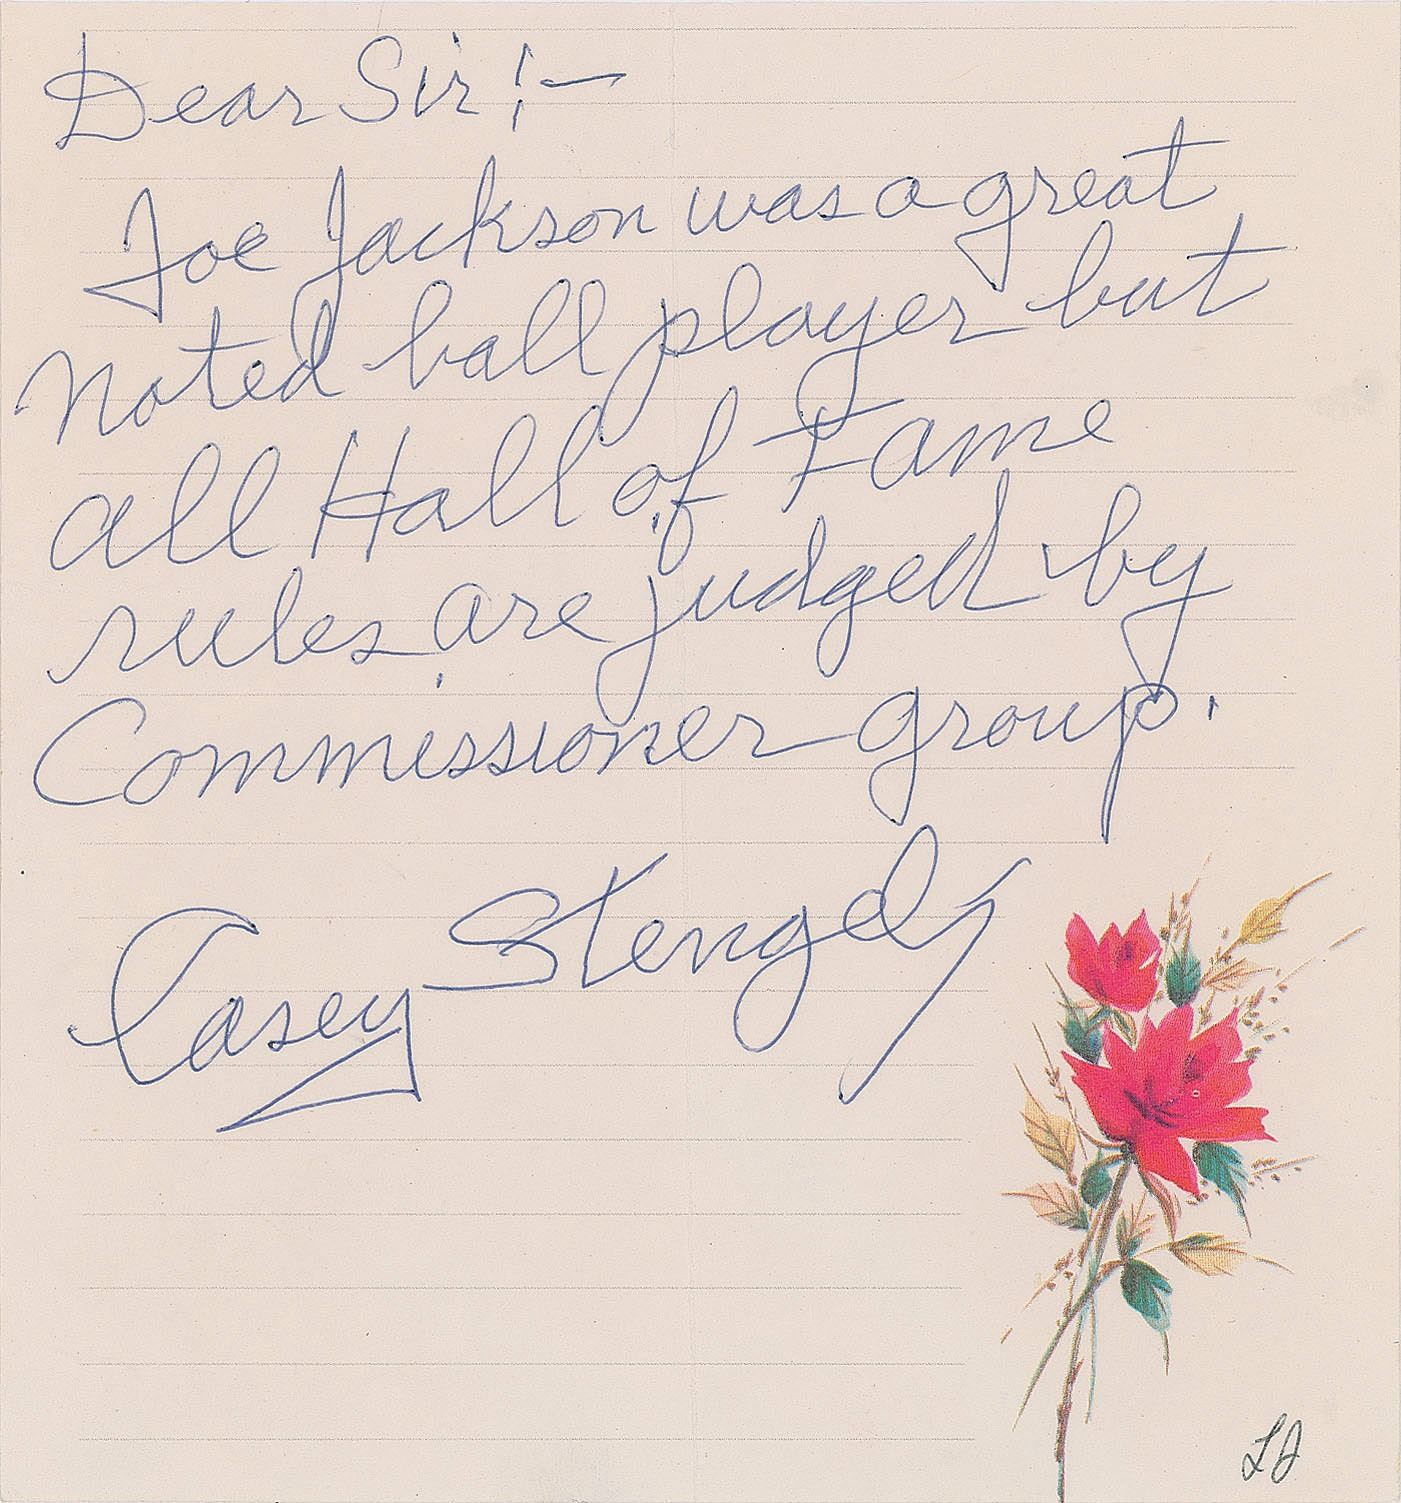 Dear Sir!—
Joe Jackson was a great
noted ball player but
all Hall of Fame
rules are judged by
Commissioner group.
Casey Stengel
LJ